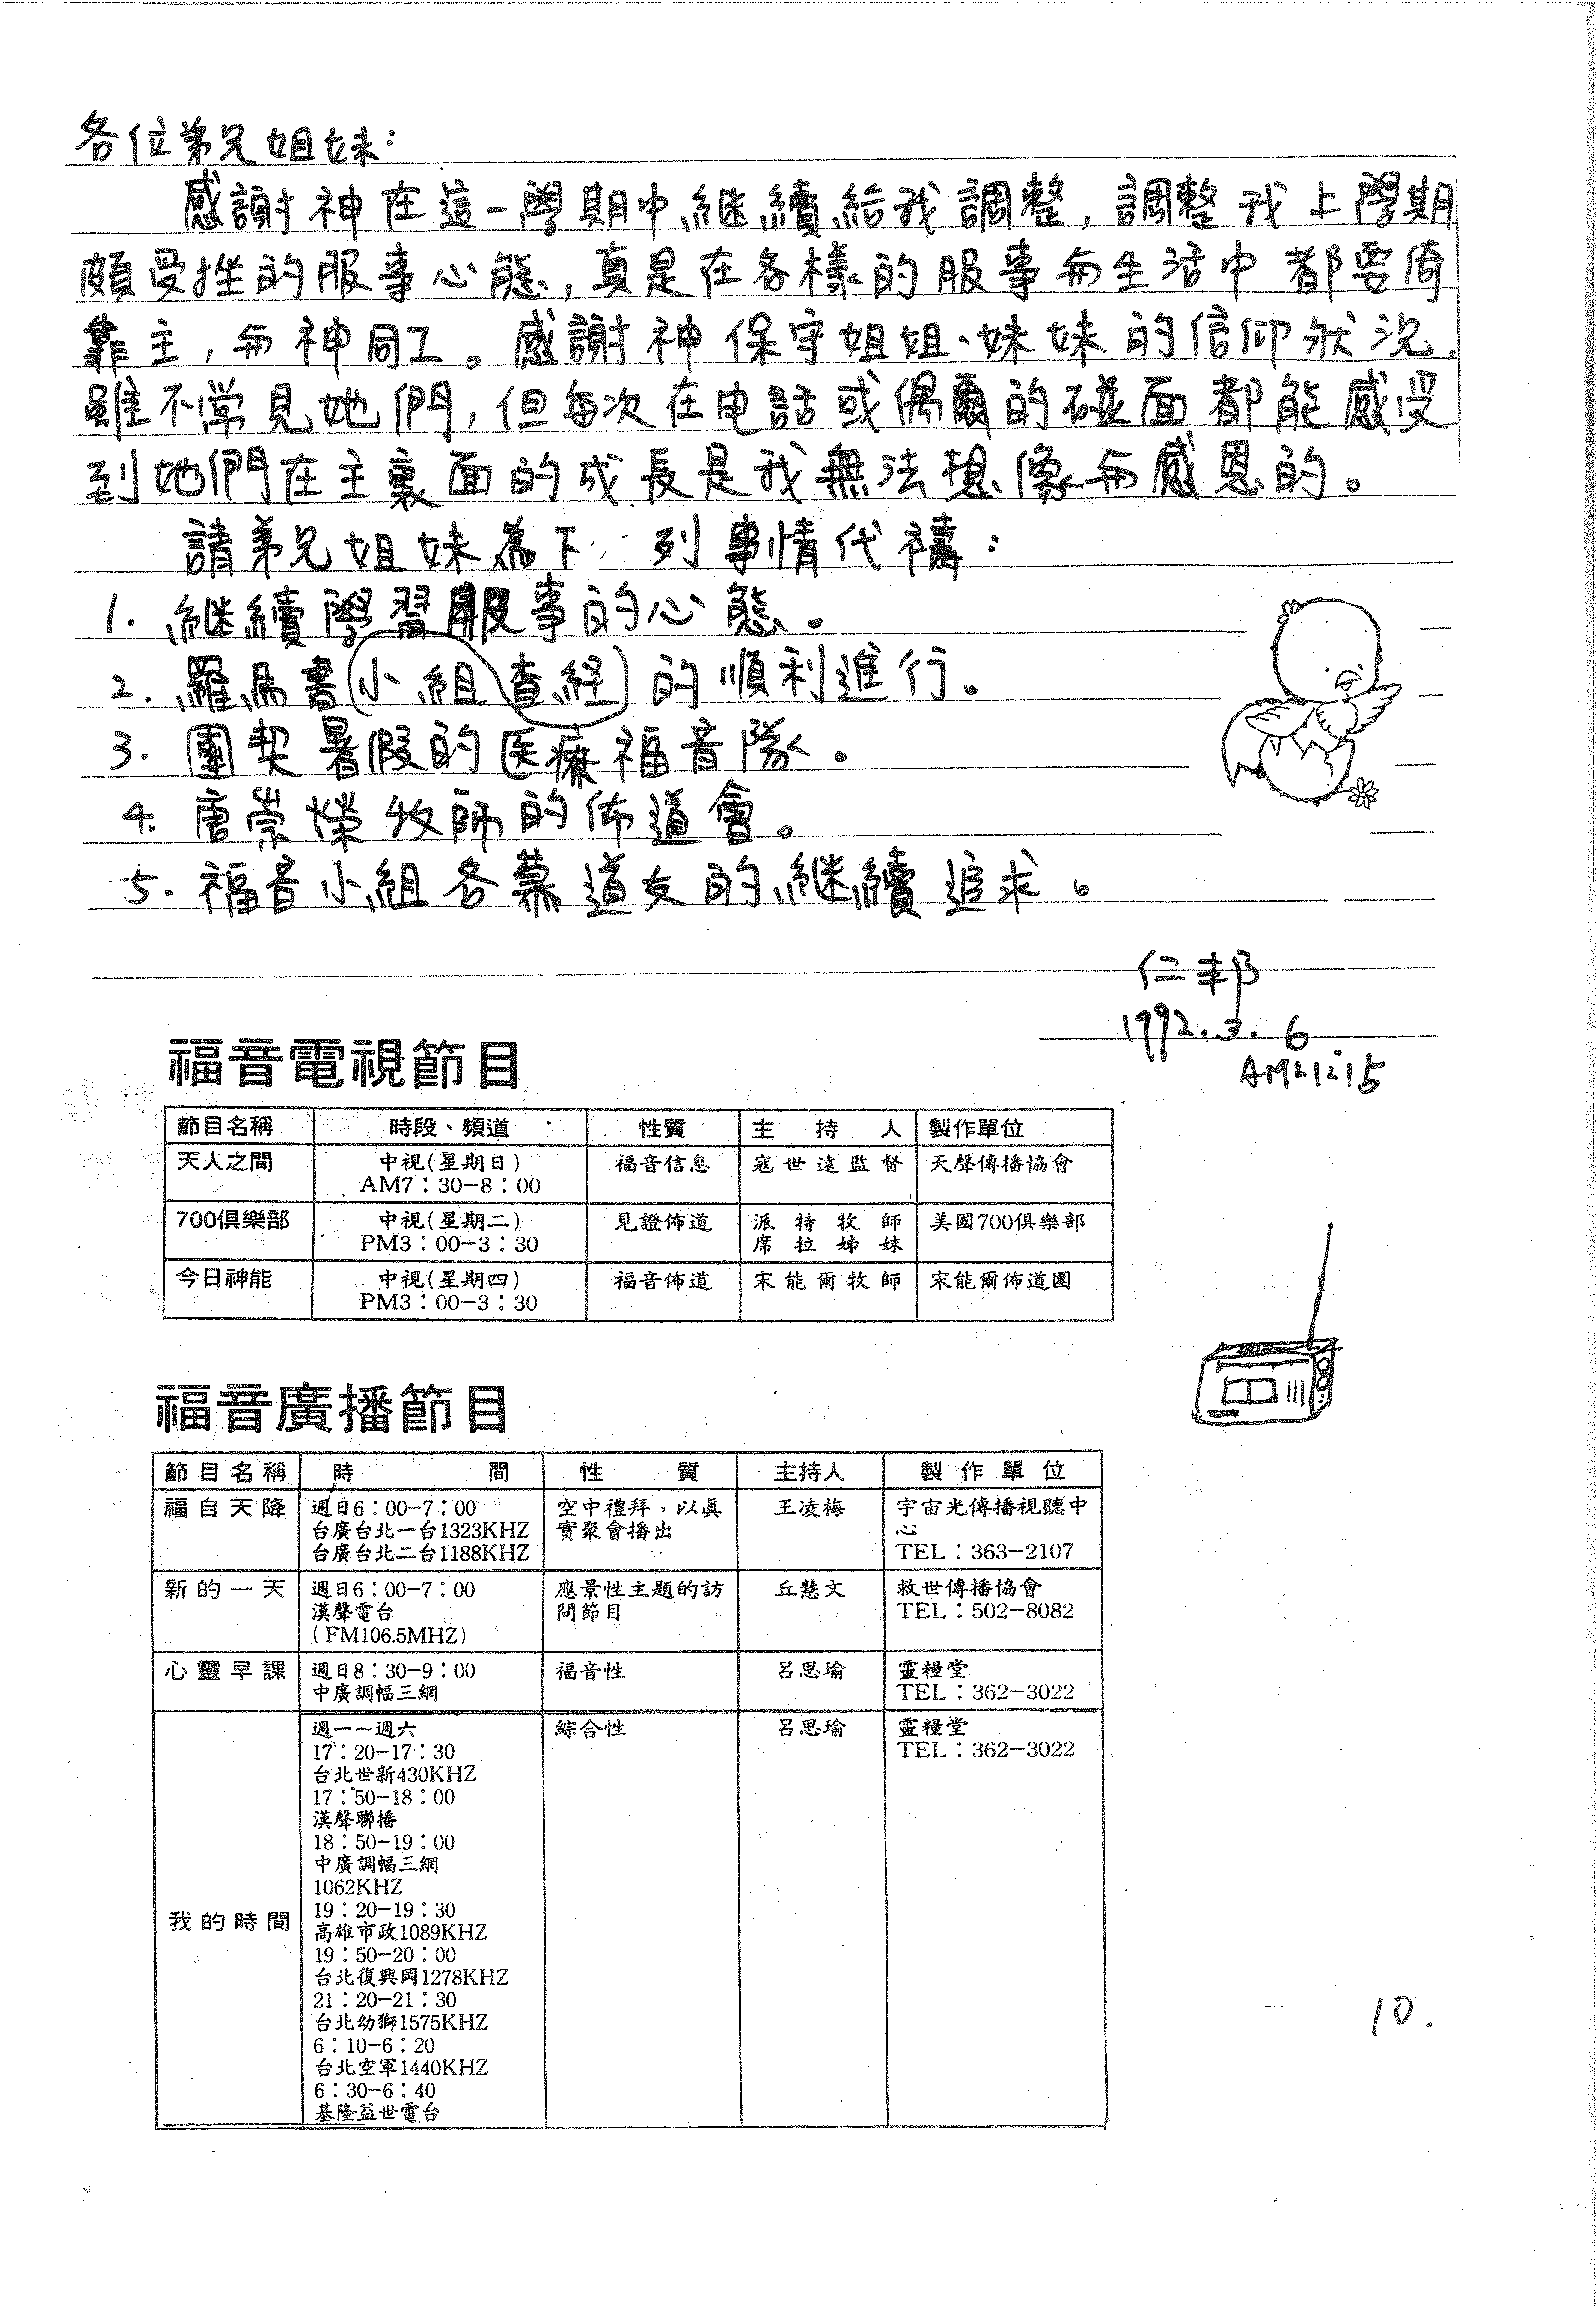 各位弟兄姐妹：
感謝神在這一學期中繼續給我調整，調整我上學期
頗受挫的服事心態，真是在各樣的服事与生活中都要倚
靠主，与神同工。感謝神保守姐姐、妹妹的信仰狀況，
雖不常見她們，但每次在电話或偶爾的碰面都能感受
到她們在主裏面的成長是我無法想像与感恩的。
請弟兄姐妹為下列事情代禱：
1. 繼續學習服事的心態。
2. 羅馬書小組查經的順利進行。
3. 團契暑假的医療福音隊。
4. 唐崇榮牧師的佈道會。
5. 福音小組各慕道友的繼續追求。
仁邦
1992.3.6
AM 2:15
福音電視節目
節目名稱 時段、頻道 性質 主持人 製作單位
天人之間 中視(星期日) 福音信息 寇世遠監督 天聲傳播協會
AM7：30-8：00
700俱樂部 中視(星期二) 見證佈道 派特牧師 美國700俱樂部
PM3：00-3：30 席拉姊妹
今日神能 中視(星期四) 福音佈道 宋能爾牧師 宋能爾佈道團
PM3：00-3：30
福音廣播節目
節目名稱 時間 性質 主持人 製作單位
福自天降 週日6：00-7：00 空中禮拜，以眞 王凌梅 宇宙光傳播視聽中
台廣台北一台1323KHZ 實聚會播出 心
台廣台北二台1188KHZ TEL：363-2107
新的一天 週日6：00-7：00 應景性主題的訪 丘慧文 救世傳播協會
漢聲電台 問節目 TEL：502-8082
(FM106.5MHZ)
心靈早課 週日8：30-9：00 福音性 呂思瑜 靈糧堂
中廣調幅三網 TEL：362-3022
週一～週六 綜合性 呂思瑜 靈糧堂
17：20-17：30 TEL：362-3022
台北世新430KHZ
17：50-18：00
漢聲聯播
18：50-19：00
中廣調幅三網
1062KHZ
19：20-19：30
我的時間 高雄市政1089KHZ
19：50-20：00
台北復興岡1278KHZ
21：20-21：30
台北幼獅1575KHZ
6：10-6：20
台北空軍1440KHZ
6：30-6：40
基隆益世電台
10.